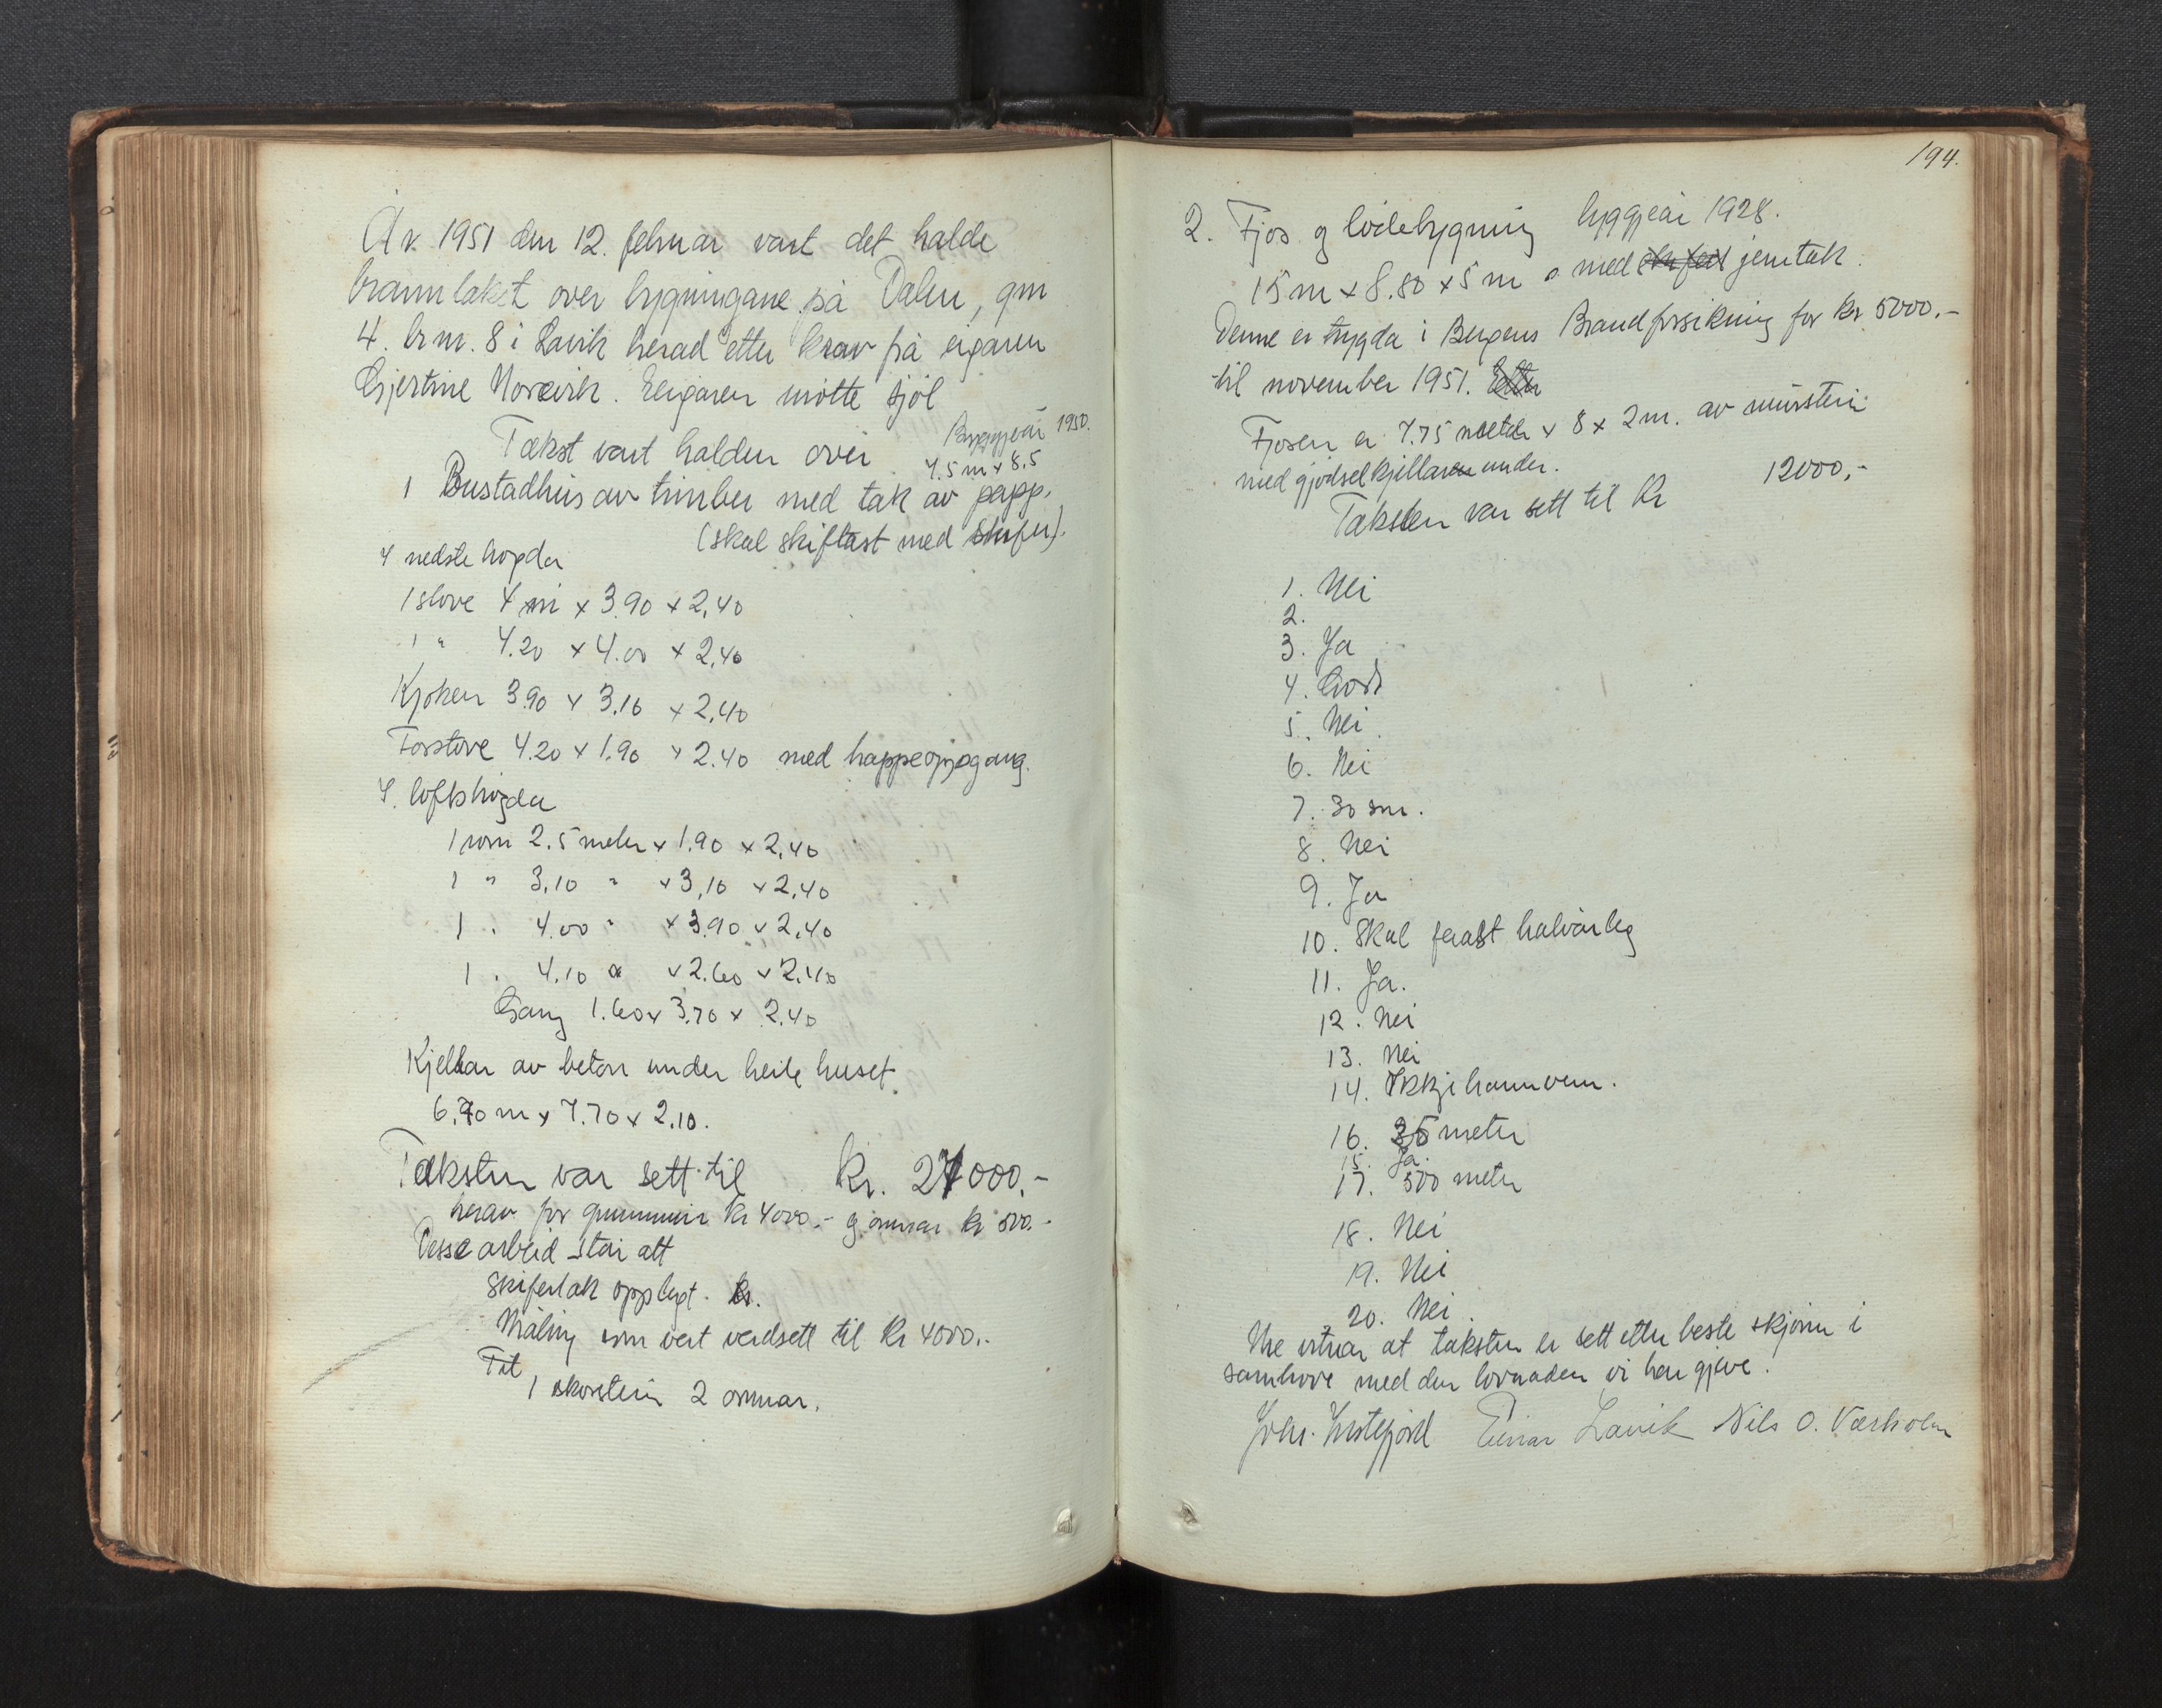 År 1951 den 12. februar vart det halde
branntakst over bygningane på Dalen, gnr
4. br nr. 8 i Lavik herad etter krav frå eigaren
Gjertine Norevik. Eigaren møtte sjøl
Takst vart halden over Byggjeår 1950.
7.5 m x 8.5
1 Bustadhus av timber med tak av papp.
(skal skiftast med skifer).
I nedste høgda
1 stove 4 m x 3.90 x 2,40
1 " 4.20 x 4.00 x 2,40
Kjøken 3.90 x 3.10 x 2,40
Forstove 4.20 x 1.90 x 2.40 med trappeoppgang.
I. loftshøgda
1 rom 2.5 meter x 1.90 x 2,40
1 " 3,10 " x 3,10 x 2,40
1 " 4.00 " x 3.90 x 2,40
1 " 4.10 " x 2.60 x 2.40
Gang 1.60 x 3.70 x 2.40
Kjellar av betong under heile huset
6.70 m x 7.70 x 2.10.
Taksten var sett til kr. 27000.-
herav for grunnmur kr 4000.- og omnar kr 500.-
Desse arbeid står att
Skifertak opplegt. kr.
Måling som vert verdsett til kr 4000.-
Til
1 skorstein 2 omnar.
194.
2. Fjos og lødebygning byggjeår 1928.
15 m x 8.80 x 5 m med skifer jerntak.
Denne er trygda i Bergens Brandforsikring for kr 5000.-
til november 1951. Etter
Fjosen er 7.75 meter x 8 x 2 m. av murstein
med gjødselkjellaren under.
Taksten var sett til kr 12000,-
1. Nei
2.
3. Ja
4. Godt
5. Nei.
6. Nei
7. 30 sm.
8. Nei
9. Ja
10. Skal ferast halvårleg
11. Ja.
12. Nei
13. Nei
14. Ikkje brannvern.
16. 35 meter
15. Ja.
17. 500 meter
18. Nei
19. Nei
20. Nei.
Me vitnar at taksten er sett etter beste skjønn i
samhøve med den lovnaden vi har gjeve.
Einar Lavik Nils O.Værholm